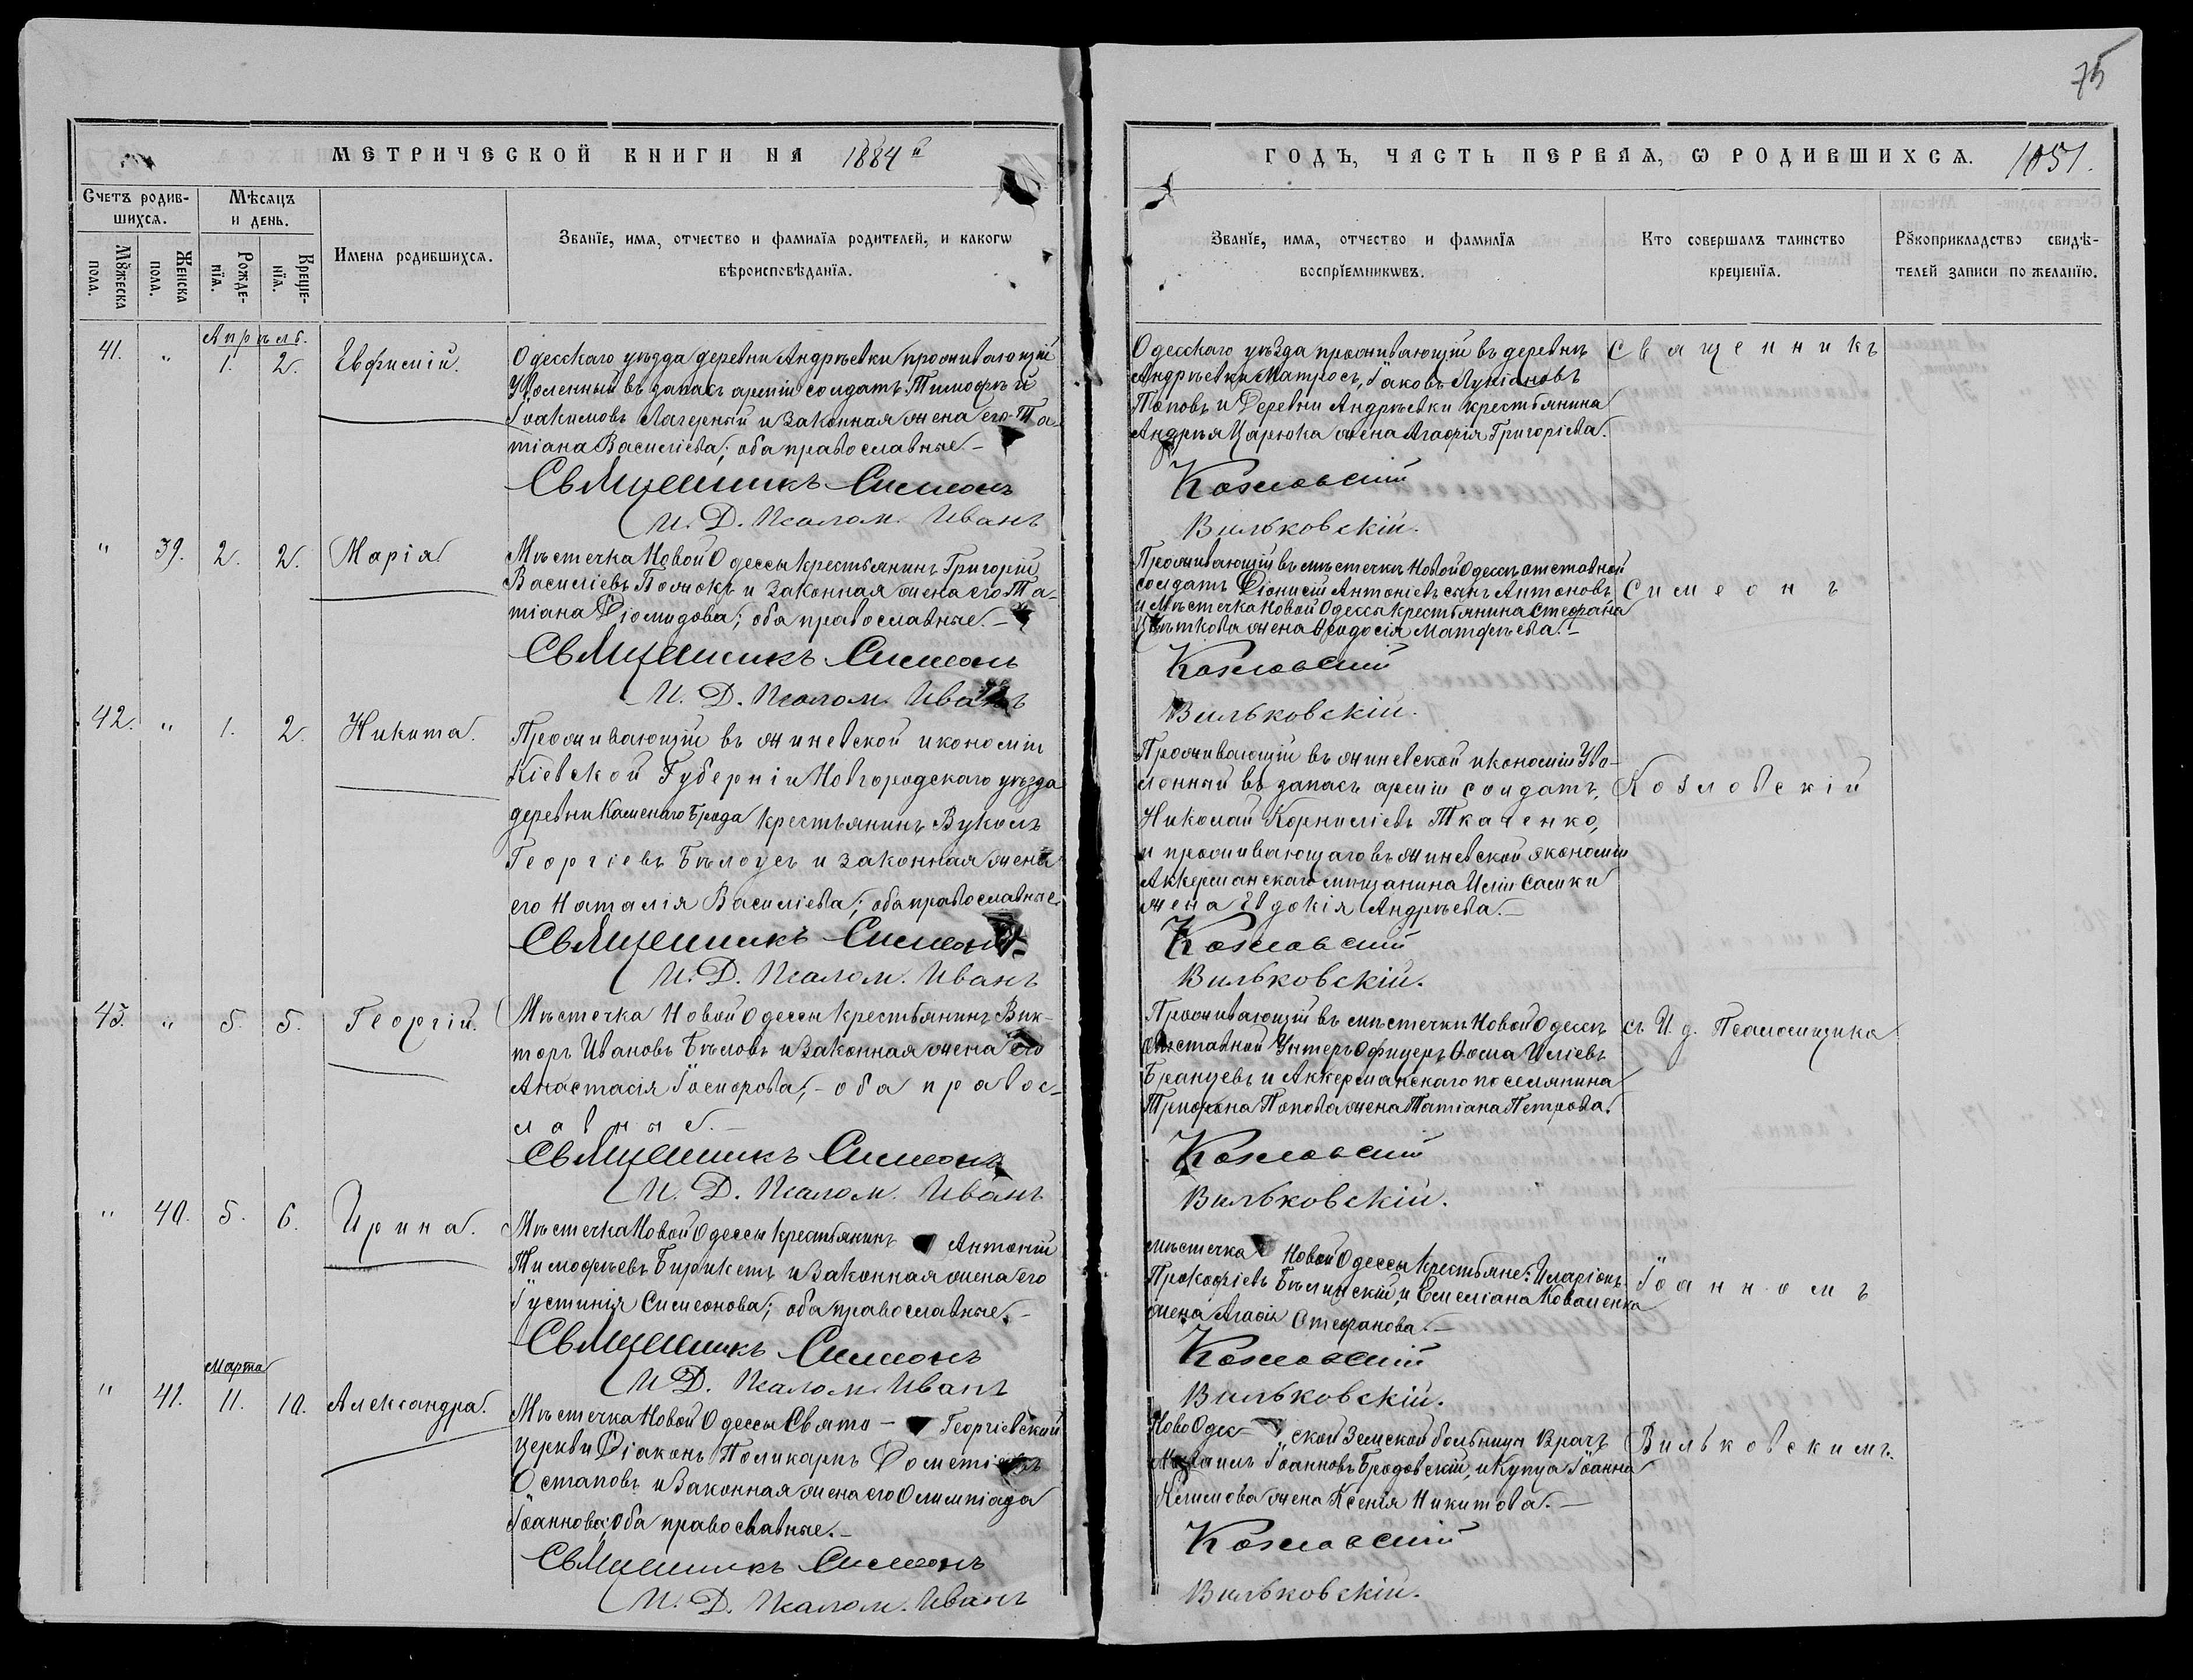 75
МЕТРИЧЕСКОЙ КНИГИ НА 1884й
ГОДЪ, ЧАСТЬ ПЕРВАЯ, Ѡ РОДИВШИХСѦ. 1051.
Счетъ родив-
шихсѧ.
Мѣсяцъ
и день.
Мꙋжеска
пола.
Женска
пола.
Рожде-
нїя.
Креще-
нїя.
Имена родившихсѧ.
Званїе, имѧ, отчество и фамилїѧ родителей, и какогѡ
вѣроисповѣданїѧ.
Званїе, имѧ, отчество и фамилїѧ
воспрїемникѡвъ.
Кто совершалъ таинство
крещенїѧ.
Рꙋкоприкладство свидѣ-
телей записи по желанїю.
Апрѣль.
41. " 1. 2. Евфимій.
Одесскаго уѣзда деревни Андрѣевки проживающій
Уволенный въ запасъ арміи солдатъ Тимофѣй
Іоакимовъ Лагерный и Законная жена его Та-
тіана Василіева; оба православные.-
Священникъ Симеонъ
И. Д. Псалом. Иванъ
Одесскаго уѣзда проживающій въ деревнѣ
Андрѣевки Матросъ, Іаковъ Лукіановъ
Поповъ и Деревни Андрѣевки крестьянина
Андрѣя Царюка жена Агафія Григоріева.
Козловскій
Вильковскій.
Священникъ
" 39. 2. 2. Марія
Мѣстечка Новой Одессы крестьянинъ Григорій
Василіевъ и Законная жена его Та-
тіана Діомидова; оба православные.-
Священникъ Симеонъ
И. Д. Псалом. Иванъ
Проживающій въ мѣстечкѣ Новой Одессѣ отставной
солдатъ Діонисій Антоніевъ сынъ Антоновъ
и Мѣстечка Новой Одессы крестьянина Стефана
Цвѣткова жена Ѳеодосія Матфѣева.-
Козловскій
Вильковскій.
Симеонъ
42. " 1. 2. Никита.
Проживающій въ жиневской икономіи
Кіевской Губерніи Новгородскаго уѣзда
деревни Каменаго Брода крестьянинъ Вуколъ
Георгіевъ Бѣлоусъ и законная жена
его Наталія Василіева; оба православные.
Священникъ Симеонъ
И. Д. Псалом. Иванъ
Проживающій въ жиневской икономіи Уво-
ленный въ запасъ арміи солдатъ,
Николай Корниліевъ Ткаченко,
и проживающаго въ жиневской экономіи
Аккерманскаго мѣщанина Иліи Самки
жена Евдокія Андрѣева.-
Козловскій
Вильковскій.
Козловскій
43. " 5. 5. Георгій.
Мѣстечка Новой Одессы крестьянинъ Вик-
торъ Ивановъ Бѣловъ и Законная жена его
Анастасія Іосифова;- оба правос-
лавные.-
Священникъ Симеонъ
И. Д. Псалом. Иванъ
Проживающій въ мѣстечкѣ Новой Одессѣ
отставной Унтеръ Офицеръ Ѳома Иліевъ
Бранцевъ и Аккерманскаго поселянина
Трифона Попова жена Татіана Петрова.
Козловскій
Вильковскій.
съ И. д. Псаломщика
" 40. 5. 6. Ирина.
Мѣстечка Новой Одессы крестьянинъ Антоній
Тимофѣевъ и Законная жена его
Іустинія Симеонова; оба православные.-
Священникъ Симеонъ
И. Д. Псалом. Иванъ
мѣстечка Новой Одессы крестьяне: Иларіонъ
Прокофіевъ Бѣлинскій, и Емеліана Коваленка
жена Агафія Стефанова.-
Козловскій
Вильковскій.
Іоанномъ
Марта
" 41. 11. 10. Александра.
Мѣстечка Новой Одессы Свято- Георгіевской
церкви Діаконъ Поликарпъ Дометіевъ
Остаповъ и Законная жена его Олимпіада
Іоаннова; Оба православные.-
Священникъ Симеонъ
И. Д. Псалом. Иванъ
НовоОдес- ской Земской больницы Врачъ
Михаилъ Іоанновъ Бродовскій, и Купца Іоанна
Климова жена Ксенія Никитова.-
Козловскій
Вильковскій.
Вильковскимъ.